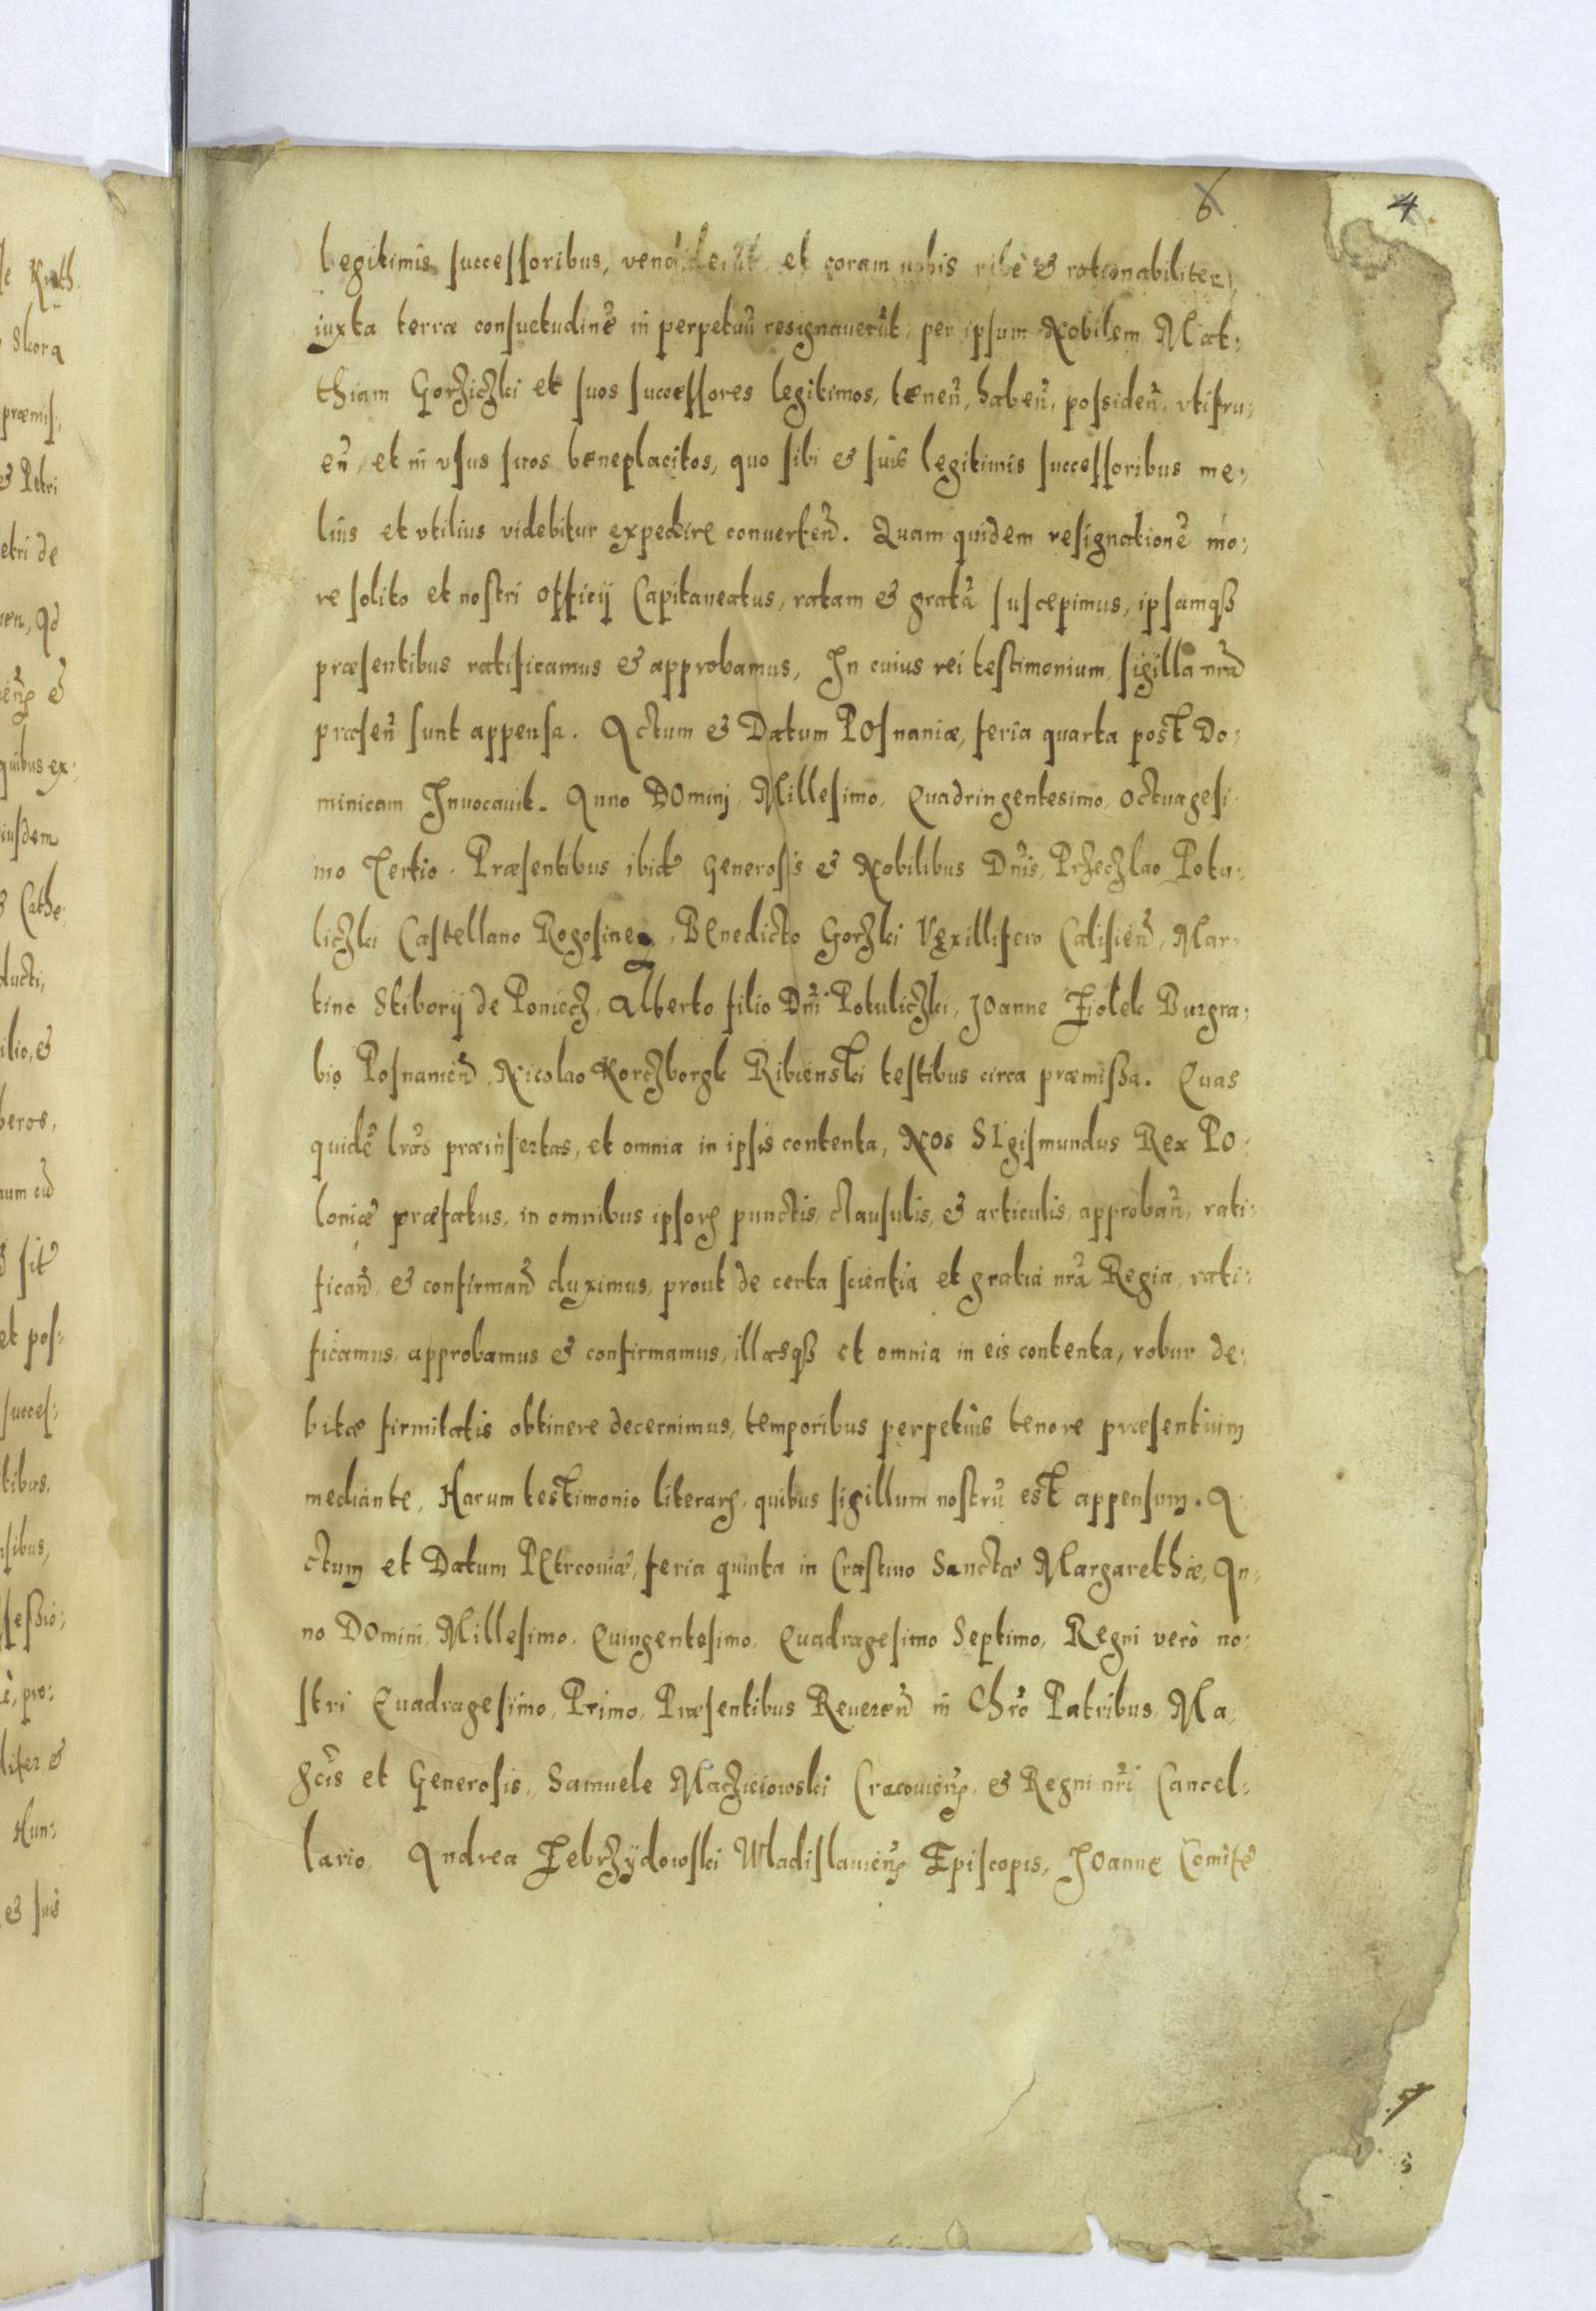 6 4
legitimis successoribus, vendiderūt, et coram nobis ritè & rationabiliter,
iuxta terræ consuetudinē in perpetuū resignauerūt, per ipsum Nobilem Mat:
thiam Gorziczki et suos successores legitimos, tenen̄, haben̄, possiden̄, vtifru:
en̄, et in vsus suos beneplacitos, quo sibi & suis legitimis successoribus me:
lius et vtilius videbitur expedire conuerten̄. Quam quidem resignationē mo:
re solito et nostri officij Capitaneatus, ratam & gratā suscepimus, ipsamqß
præsentibus ratificamus & approbamus, In cuius rei testimonium, sigilla nrā
præsen̄ sunt appensa. Actum & Datum POsnaniæ, feria quarta post Do:
minicam Inuocauit. Anno DOminj Millesimo, Quadringentesimo, octuagesi:
mo Tertio. Præsentibus ibid̄ Generosis & Nobilibus Dnīs, Przeczlao Potu:
liczki Castellano Rogosineͻ, BEnedicto Gorzki Vexillifero Calisien̄, Mar:
tino Stiborij de Poniecz, Alberto filio Dnī Potuliczki, JOanne Fiolek Burgra:
bio Posnanien̄, Nicolao Korczborgk Ribienski testibus circa præmißa. Quas
quidē lrās præinsertas, et omnia in ipsis contenta, NOs SIgismundus Rex PO:
loniæ præfatus, in omnibus ipsorꝝ punctis, clausulis, & articulis, approban̄, rati:
fican̄, & confirman̄ duximus, prout de certa scientia et gratia nrā Regia, rati:
ficamus, approbamus & confirmamus, illasqß et omnia in eis contenta, robur de:
bitæ firmitatis obtinere decernimus, temporibus perpetuis tenore præsentium
mediante, Harum testimonio literarꝝ, quibus sigillum nostrū est appensum. A
ctum et Datum PEtrcouiæ, feria quinta in Crastino Sanctæ Margarethæ, An:
no DOmini, Millesimo, Quingentesimo, Quadragesimo Septimo, Regni verò no:
stri Quadragesimo, Primo, Præsentibus Reueren̄ in Chrō Patribus, Ma:
gcīs et Generosis, Samuele Macziciowski Cracouien̄, & Regni nrī Cancel:
lario, Andrea Zebrzydowski Wladislauien̄ Episcopis, JOanne Comite